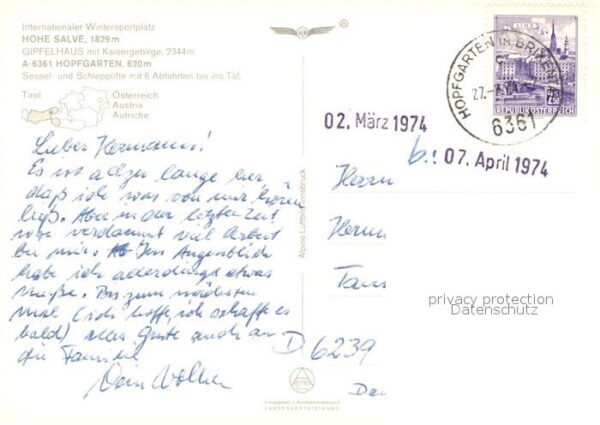 Internationaler Wintersportplatz
HOHE SALVE, 1829 m
GIPFELHAUS mit Kaisergebirge, 2344 m
A-6361 HOPFGARTEN, 620 m
Sessel- und Schlepplifte mit 6 Abfahrten bis ins Tal.
Tirol
Österreich
Austria
Autriche
®
HOPFGARTEN IM BRIXENTAL
6361
REPUBLIK ÖSTERREICH
02. März 1974
b.: 07. April 1974
Lieber Hermann!
Es ist allzu lange her
daß ich was von mir hören
ließ. Aber in der letzten Zeit
war verdammt viel Arbeit
bei mir. Im Augenblick
habe ich allerdings etwas
Muße. Bis zum nächsten
Mal (ich hoffe, ich schaffe es
bald) alles Gute auch an
die Familie
Dein
Alpine Luftbild Innsbruck
Herrn
Herm
D 6239
privacy protection
Datenschutz
LANDESVERTEIDIGUNG